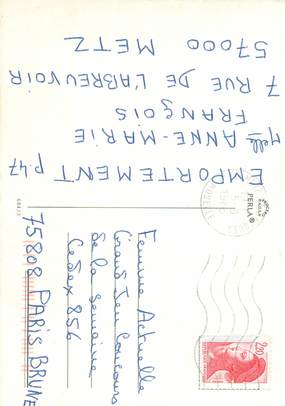 EMPORTEMENT p.47
Melle ANNE-MARIE
FRANÇOIS
7 RUE DE L'ABREUVOIR
57000 METZ
Femme Actuelle
Grand Jeu Concours
de la semaine
Cedex 856
75808 PARIS BRUNE
PERLA®
2,20